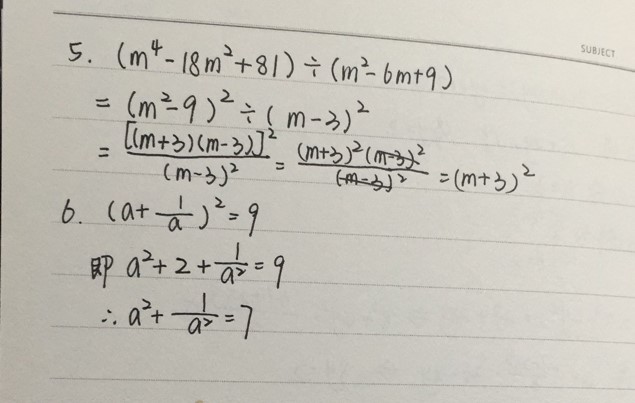 SUBJECT
5. (m⁴-18m²+81)÷(m²-6m+9)
= (m²-9)²÷(m-3)²
= [(m+3)(m-3)]²/(m-3)² = (m+3)²(m-3)²/(m-3)² = (m+3)²
6. (a+1/a)²=9
即 a²+2+1/a²=9
∴ a²+1/a²=7